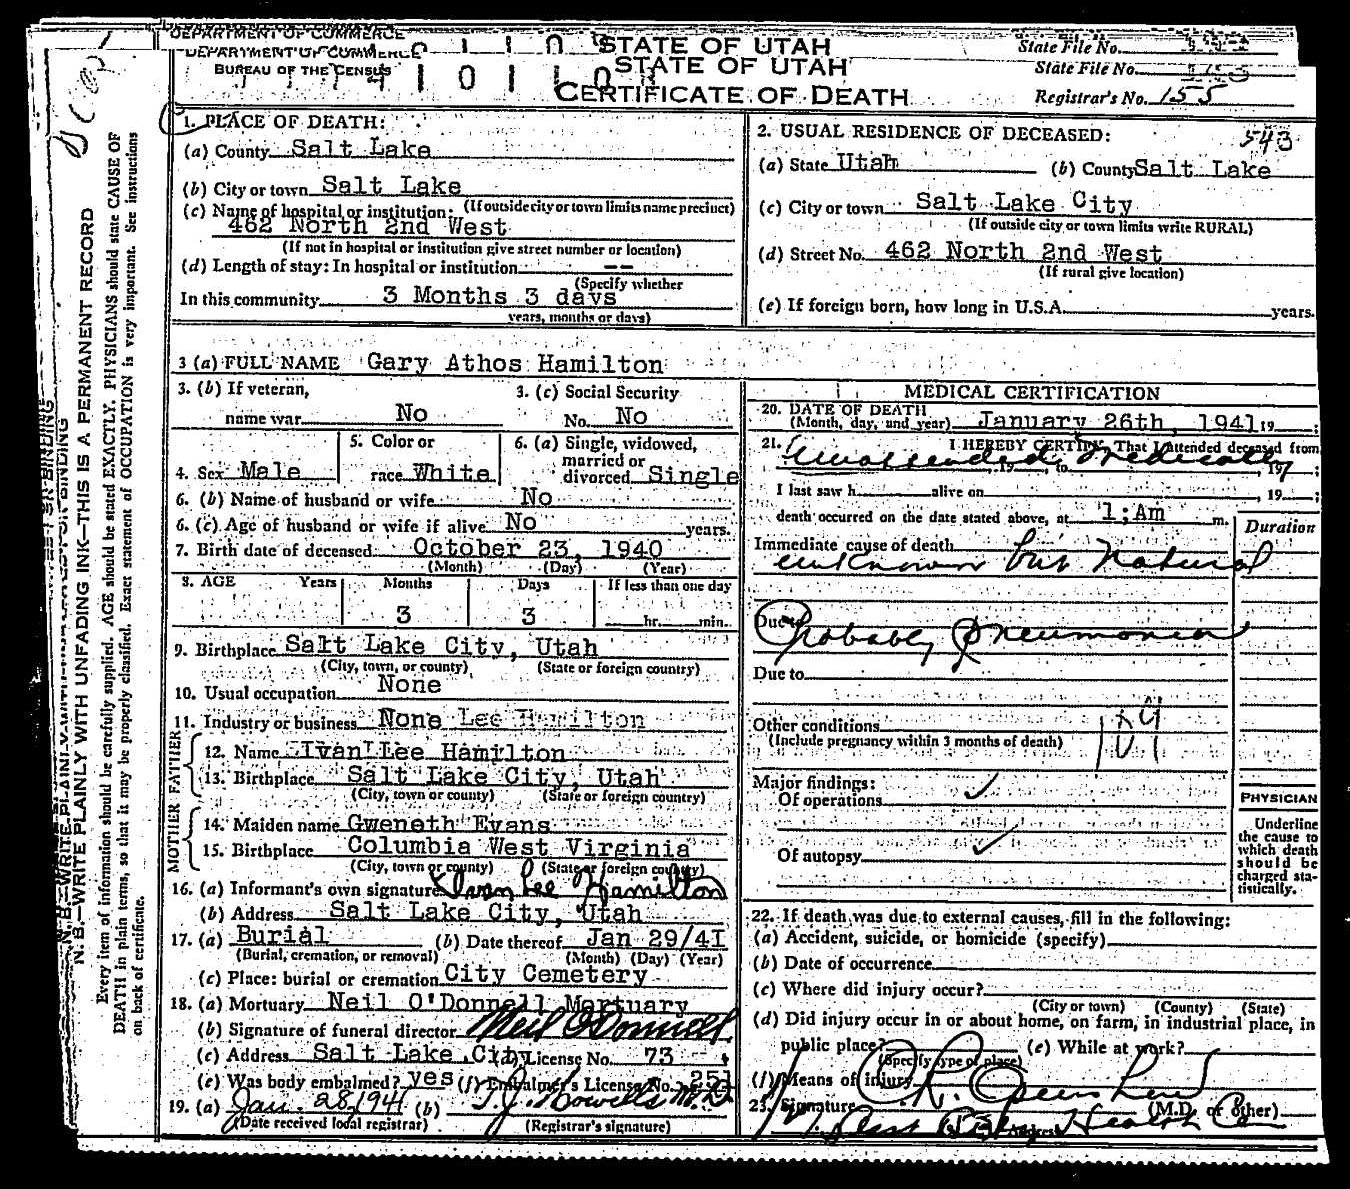 DEPARTMENT OF COMMERCE
DEPARTMENT OF COMMERCE
BUREAU OF THE CENSUS
STATE OF UTAH
STATE OF UTAH
CERTIFICATE OF DEATH
State File No.
State File No.
Registrar's No. 155
1. PLACE OF DEATH:
(a) County Salt Lake
(b) City or town Salt Lake
(If outside city or town limits name precinct)
(c) Name of hospital or institution:
462 North 2nd West
(If not in hospital or institution give street number or location)
(d) Length of stay: In hospital or institution --
(Specify whether
In this community 3 Months 3 days
years, months or days)
2. USUAL RESIDENCE OF DECEASED: 543
(a) State Utah (b) County Salt Lake
(c) City or town Salt Lake City
(If outside city or town limits write RURAL)
(d) Street No. 462 North 2nd West
(If rural give location)
(e) If foreign born, how long in U.S.A. years.
3 (a) FULL NAME Gary Athos Hamilton
3. (b) If veteran, name war No
3. (c) Social Security No. No
4. Sex Male
5. Color or race White
6. (a) Single, widowed, married or divorced Single
6. (b) Name of husband or wife No
6. (c) Age of husband or wife if alive No years.
7. Birth date of deceased October 23, 1940
(Month) (Day) (Year)
8. AGE Years Months Days If less than one day
3 3 hr. min.
9. Birthplace Salt Lake City, Utah
(City, town, or county) (State or foreign country)
10. Usual occupation None
11. Industry or business None Lee Hamilton
FATHER
12. Name Ivan Lee Hamilton
13. Birthplace Salt Lake City, Utah
(City, town or county) (State or foreign country)
MOTHER
14. Maiden name Gweneth Evans
15. Birthplace Columbia West Virginia
(City, town or county) (State or foreign country)
16. (a) Informant's own signature Ivan Lee Hamilton
(b) Address Salt Lake City, Utah
17. (a) Burial (b) Date thereof Jan 29/41
(Burial, cremation, or removal) (Month) (Day) (Year)
(c) Place: burial or cremation City Cemetery
18. (a) Mortuary Neil O'Donnell Mortuary
(b) Signature of funeral director Neil O'Donnell
(c) Address Salt Lake City (d) License No. 73
(e) Was body embalmed? yes (f) Embalmer's License No. 251
19. (a) Jan. 28, 1941 (b) T. J. Howells M.D.
(Date received local registrar) (Registrar's signature)
MEDICAL CERTIFICATION
20. DATE OF DEATH
(Month, day, and year) January 26th, 1941 19 ;
21. I HEREBY CERTIFY, That I attended deceased from
Unattended Medically , 19 , to , 19 ;
I last saw h alive on , 19 ;
death occurred on the date stated above, at 1;Am m.
Duration
Immediate cause of death
unknown but Natural
Due to Probably Pneumonia
Due to
Other conditions
(Include pregnancy within 3 months of death)
Major findings:
Of operations
Of autopsy
PHYSICIAN
Underline
the cause to
which death
should be
charged sta-
tistically.
22. If death was due to external causes, fill in the following:
(a) Accident, suicide, or homicide (specify)
(b) Date of occurrence
(c) Where did injury occur?
(City or town) (County) (State)
(d) Did injury occur in or about home, on farm, in industrial place, in
public place? (e) While at work?
(Specify type of place)
(f) Means of injury
23. Signature (M.D. or other)
Address Health
N. B.—WRITE PLAINLY WITH UNFADING INK—THIS IS A PERMANENT RECORD
Every item of information should be carefully supplied. AGE should be stated EXACTLY. PHYSICIANS should state CAUSE OF
DEATH in plain terms, so that it may be properly classified. Exact statement of OCCUPATION is very important. See instructions
on back of certificate.